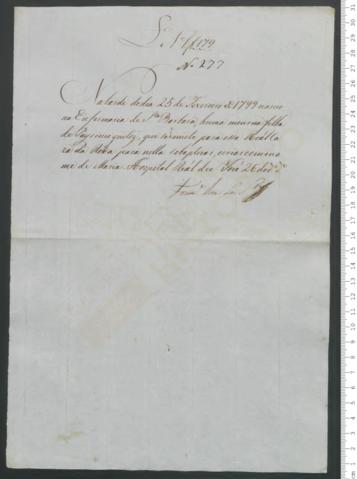 N. 277
Na tarde do dia 25 de Fevereiro de 1799 nasceo
na Enfermaria de S.ta Barbara, huma menina filha
de Pays incognitos, que remeto para essa Real Ca
za da Roda para nella se baptizar, e criar com o no
me de Maria. Hospital Real de S. Jozé 26 do d.o